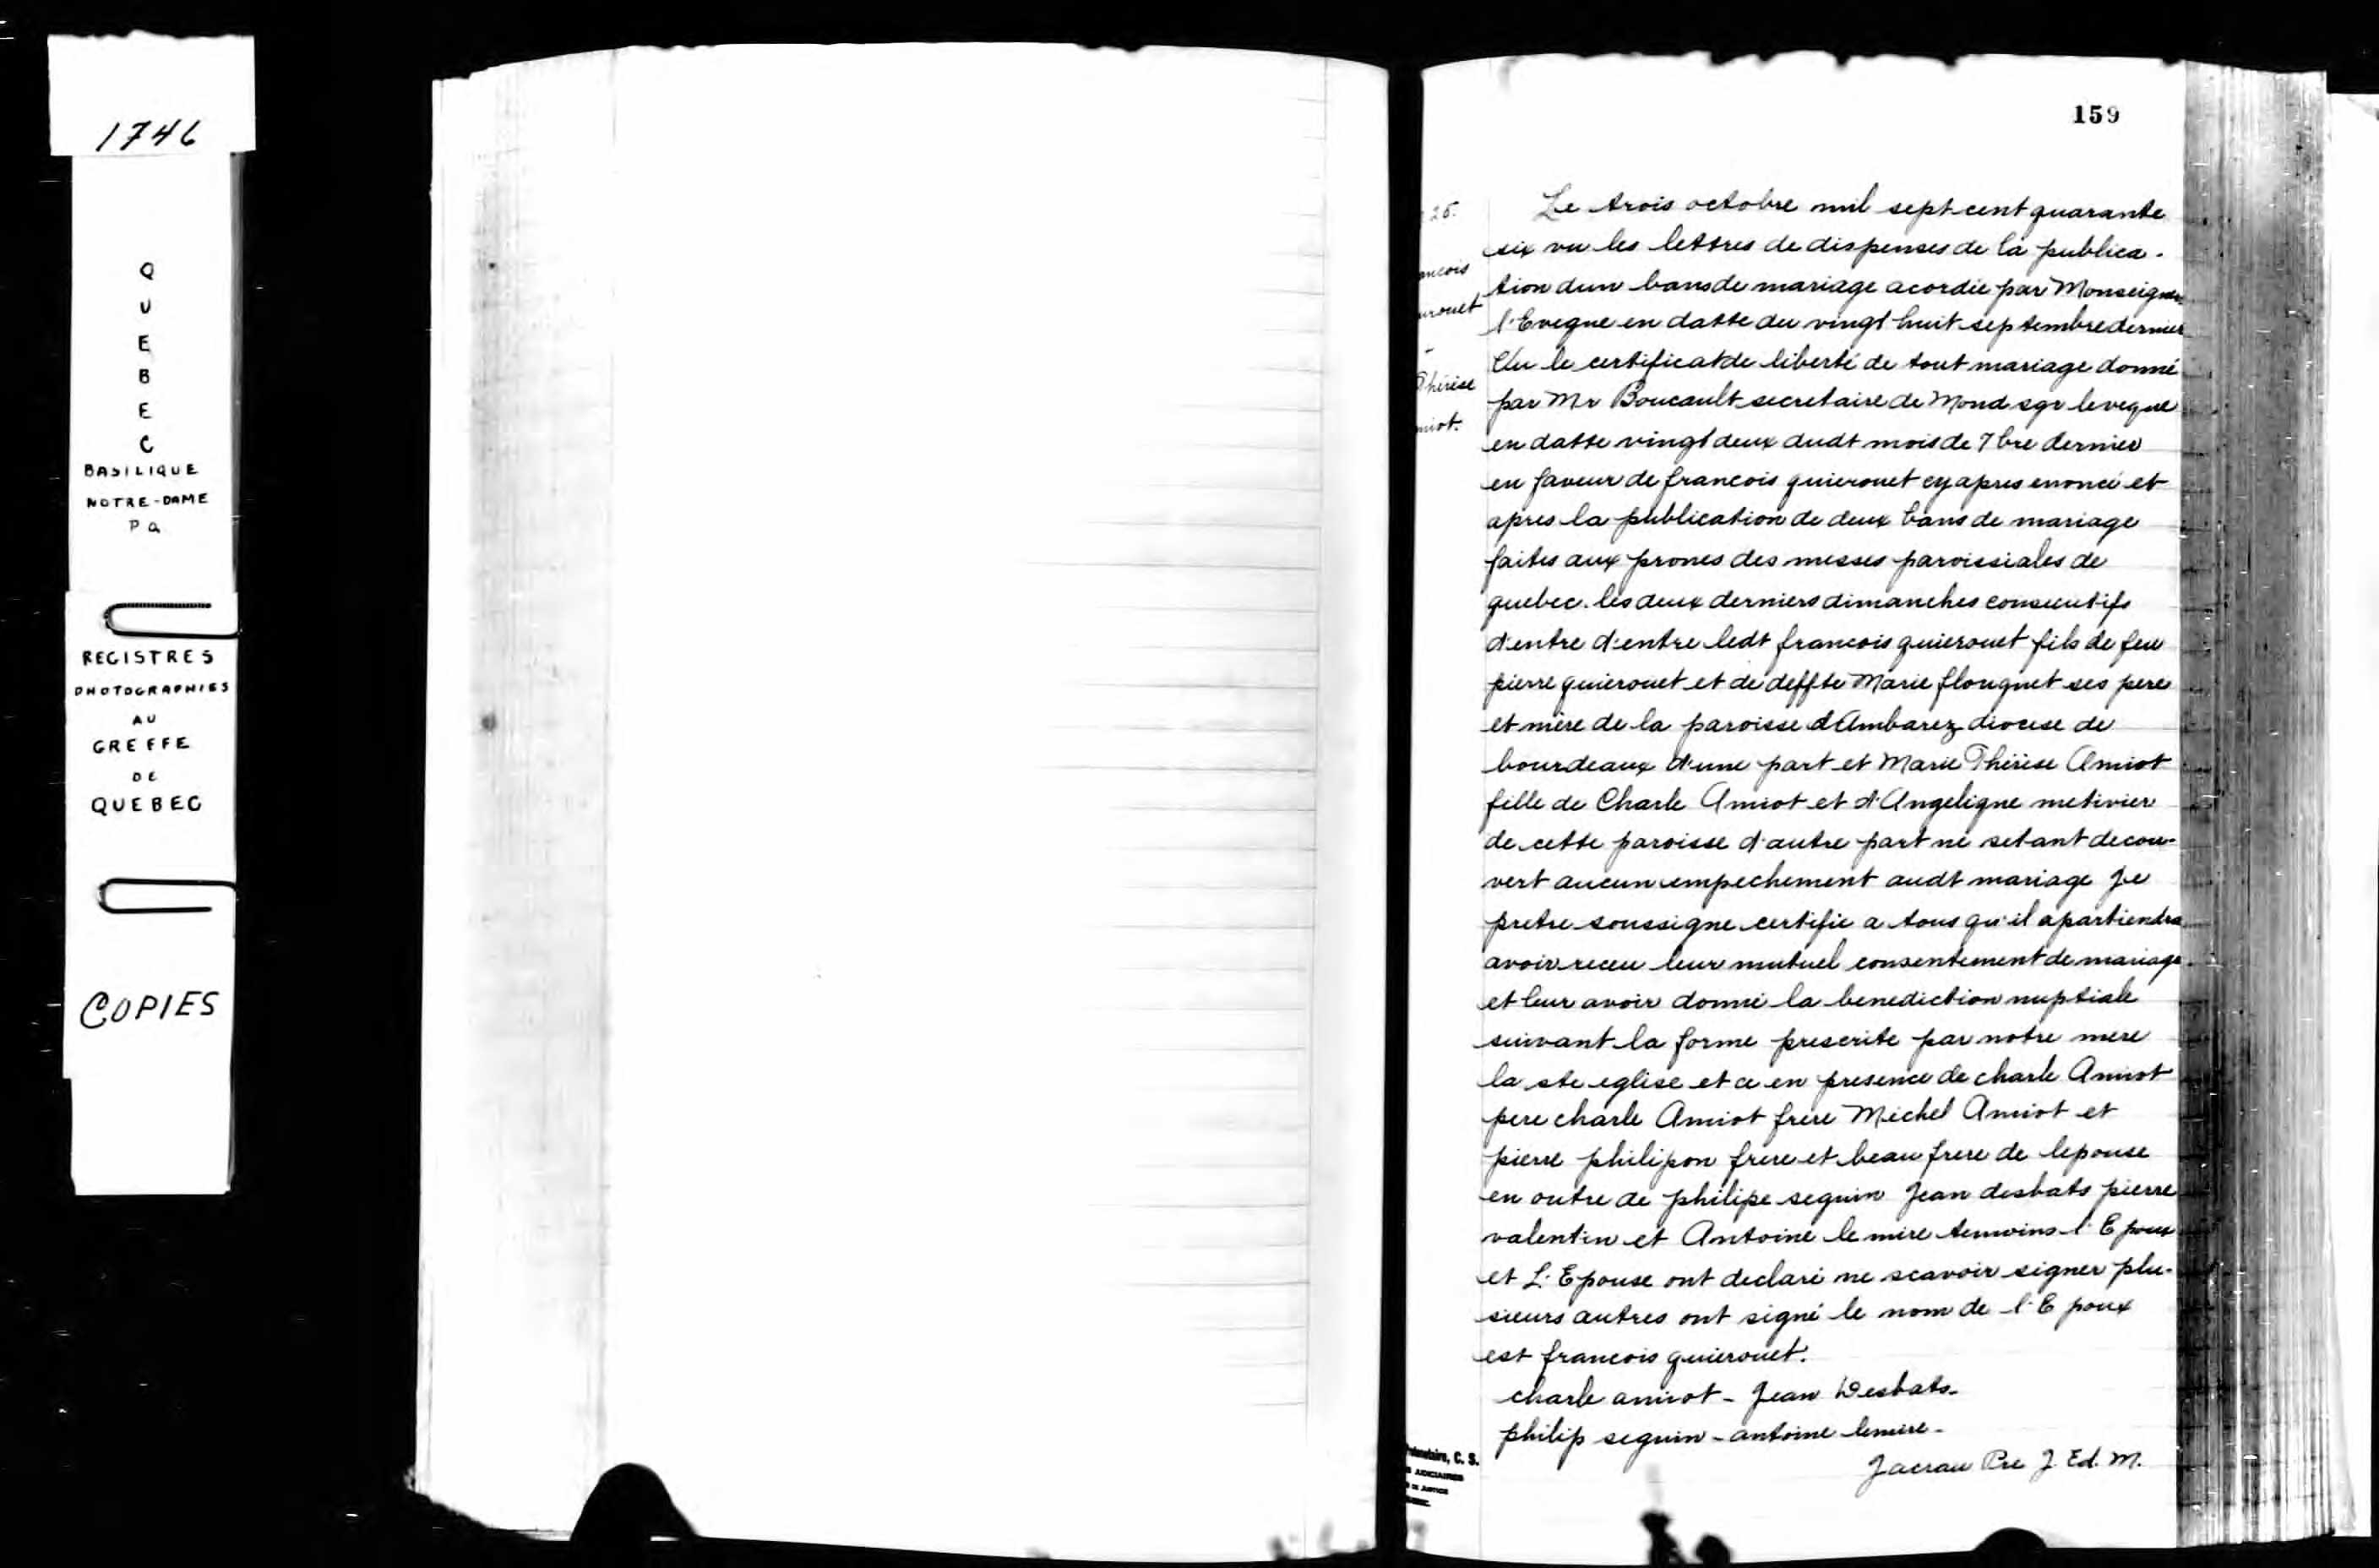 1746
Q
U
E
B
E
C
BASILIQUE
NOTRE-DAME
P Q
REGISTRES
PHOTOGRAPHIES
AU
GREFFE
DE
QUEBEC
COPIES
159
26.
ancois
urouet
-
Thérèse
miot.
Le trois octobre mil sept cent quarante
six vu les lettres de dispenses de la publica-
tion dun bans de mariage acordée par Monseigneur
l'Eveque en datte du vingt huit septembre dernier
Vu le certificat de liberté de tout mariage donné
par Mr Boucault secretaire de Mond sgr leveque
en datte vingt deux dudt mois de 7bre dernier
en faveur de francois quierouet cy apres enoncé et
apres la publication de deux bans de mariage
faites aux prones des messes paroissiales de
quebec. les deux derniers dimanches consecutifs
d'entre d'entre ledt francois quierouet fils de feu
pierre quierouet et de deffte Marie flouquet ses pere
et mère de la paroisse d'Ambarez diocese de
bourdeaux d'une part et Marie Thérèse Amiot
fille de Charle Amiot et d'Angelique metivier
de cette paroisse d'autre part ne setant decou-
vert aucun empechement audt mariage Je
pretre soussigne certifie a tous qu'il apartiendra
avoir receu leur mutuel consentement de mariage
et leur avoir donné la benediction nuptiale
suivant la forme prescrite par notre mere
la ste eglise et ce en presence de charle Amiot
pere charle Amiot frère Michel Amiot et
pierre philipon frere et beau frere de lepouse
en outre de philipe seguin Jean desbats pierre
valentin et Antoine le mire temoins l'Epoux
et L'Epouse ont declaré ne scavoir signer plu-
sieurs autres ont signé le nom de l'Epoux
est francois quierouet.
charle amiot - Jean Desbats -
philip seguin - antoine lemire -
Jacrau Pre J. Ed. M.
C. S.
JUDICIAIRES
DE JUSTICE